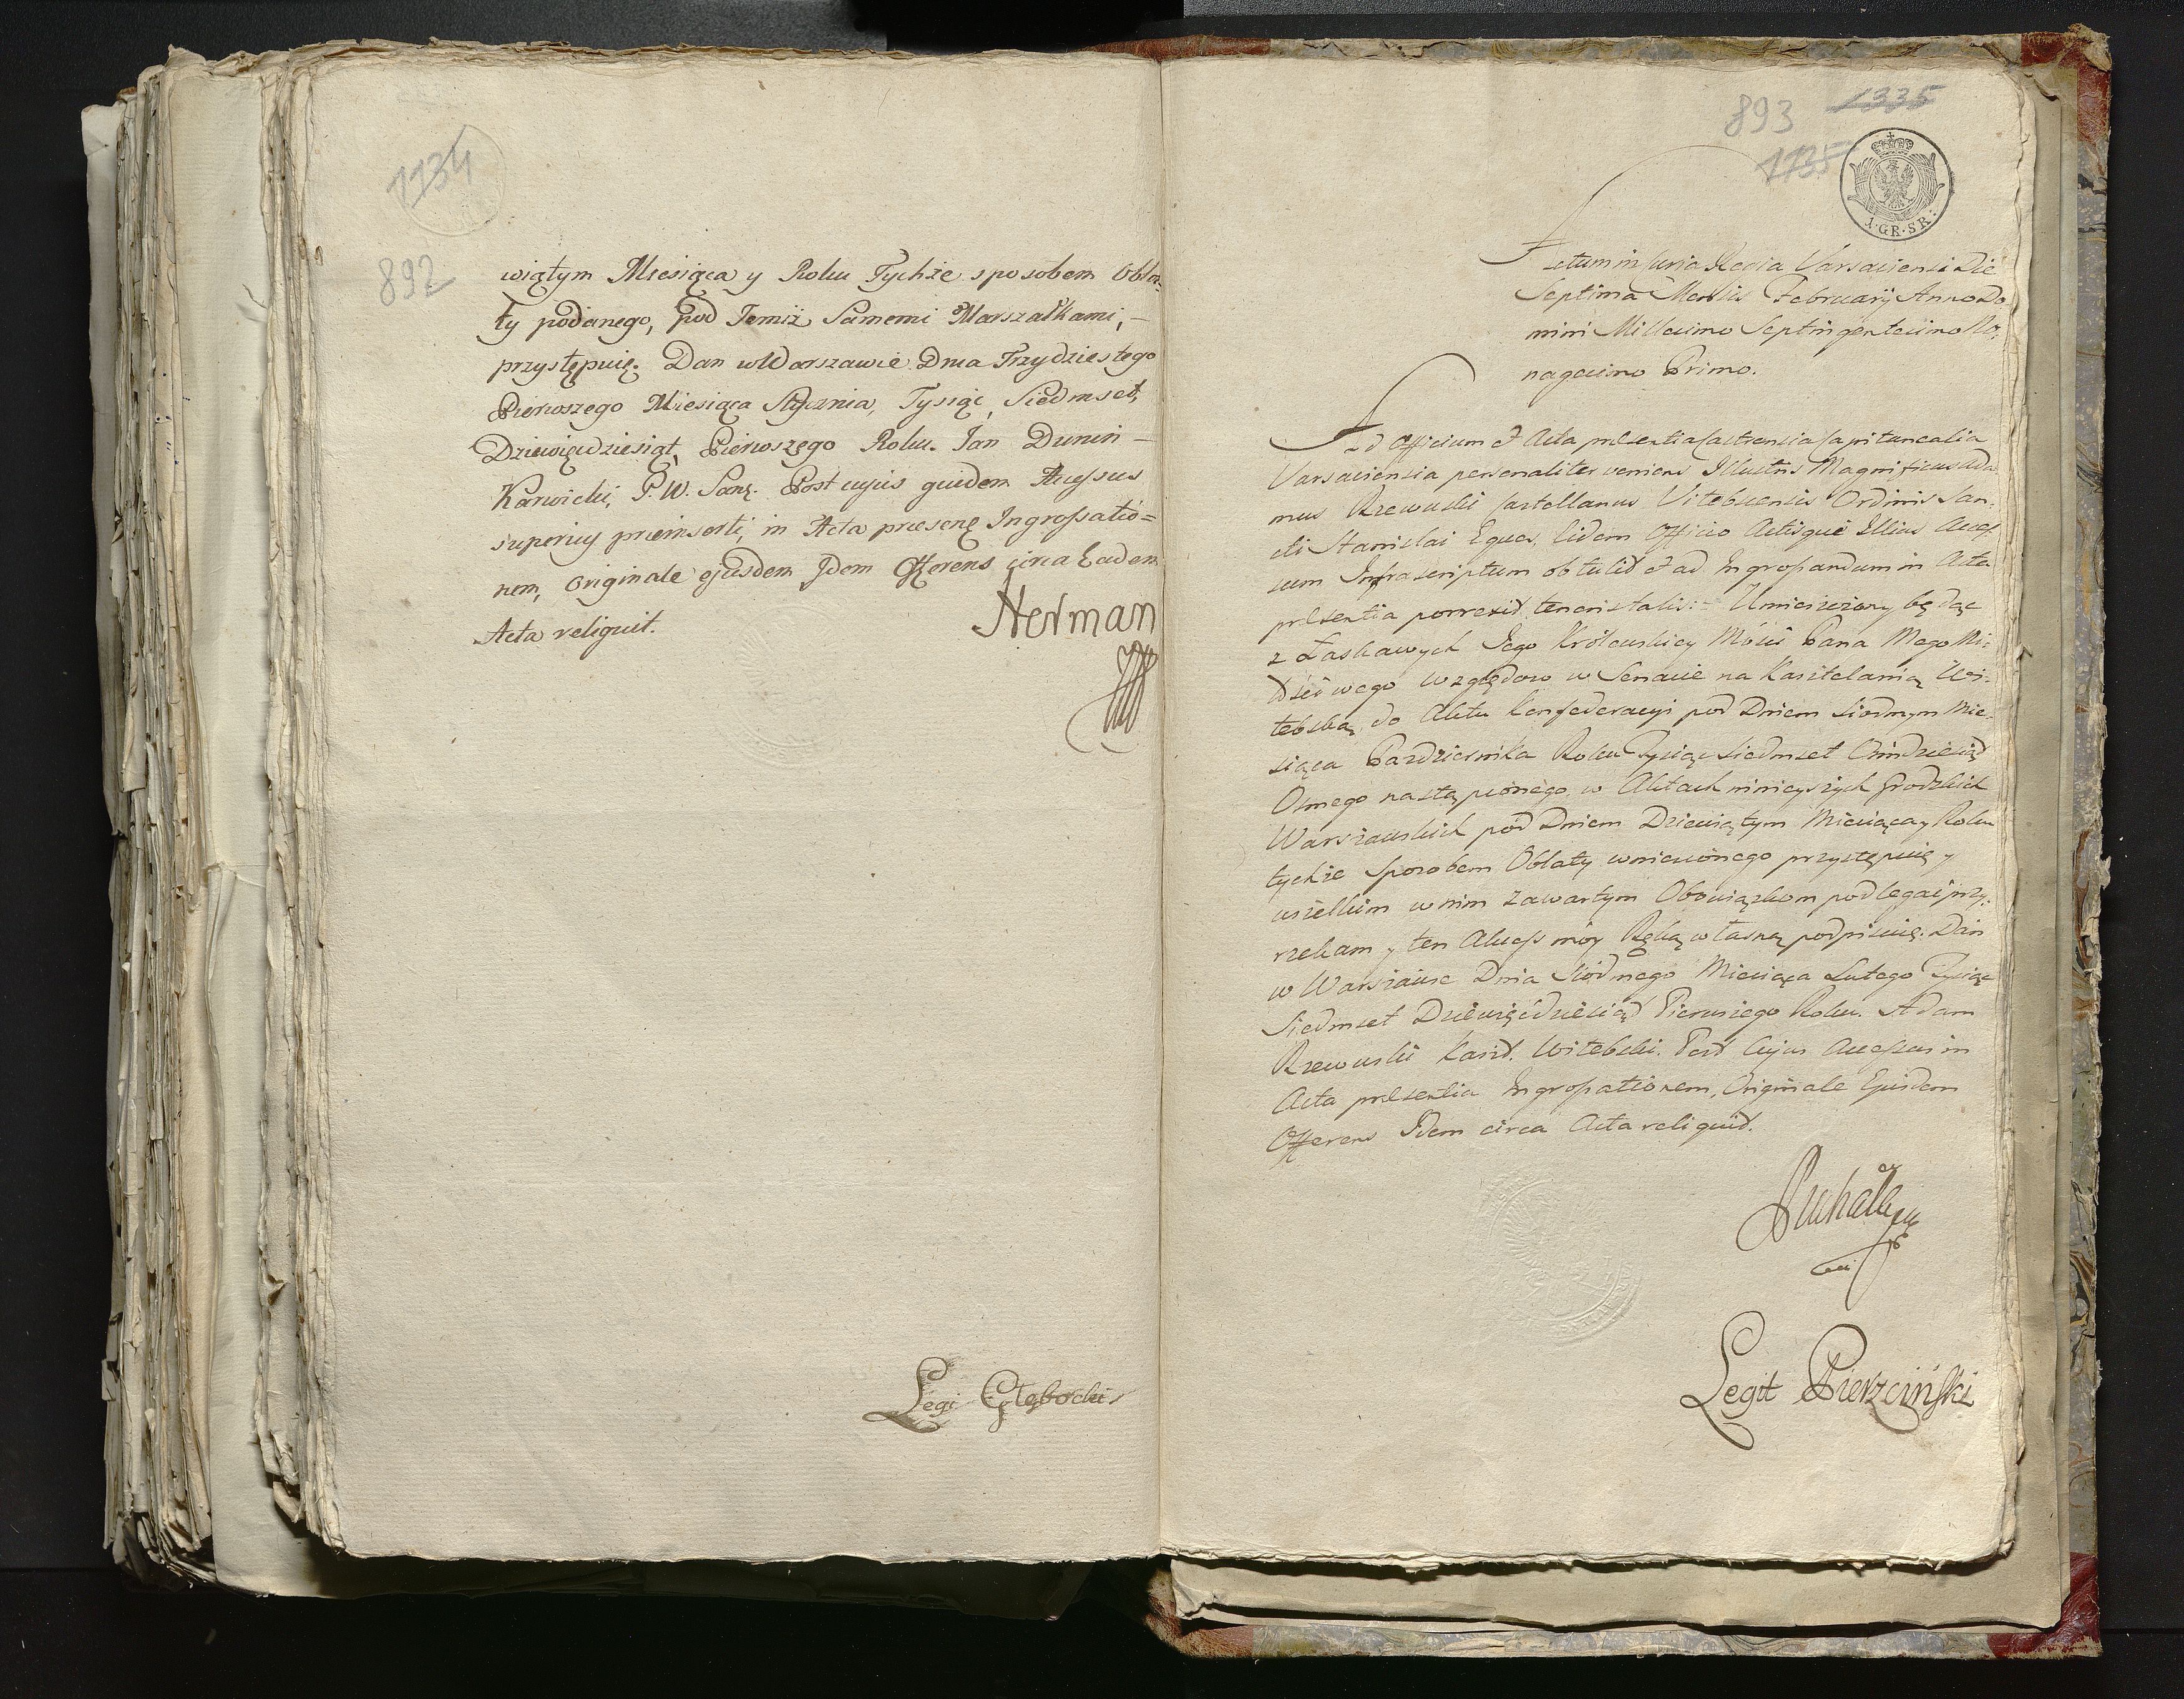 1134
892
wiątym Miesiąca y Roku Tychże sposobem Obla-
ty podanego, pod Temiż Samemi Marszałkami, –
przystępuię. Dan w Warszawie Dnia Trzydziestego
Pierwszego Miesiąca Stycznia, Tysiąc, Siedmset,
Dziewięćdziesiąt, Pierwszego Roku. Jan Dunin –
Karwicki, P. W. Sanę. Post cujus quidem Accessus
superius præinserti, in Acta præsenę Ingrossatio=
nem, Originale ejusdem Idem Offerens circa Eadem
Acta reliquit.
Herman
Legi Głębocki
893 1335
1135
1·GR·SR:
Actum in Curia Regia Varsaviensi Die
Septima Mensis Februarij Anno Do
mini Millesimo Septingentesimo No,
nagesimo Primo.
Ad Officium et Acta præsentia Castrensia Capitanealia
Varsaviensia personaliter veniens Illustris Magnificus Ada
mus Rzewuski Castellanus Vitebscensis Ordinis San,
cti Stanislai Eques, Eidem Officio Actisque Illius Acces
sum Infrascriptum obtulit et ad Ingrossandum in Acta
præsentia porrexit tenoris talis: – Umieszczony będąc
z Łaskawych Jego Królewskiey Mości Pana Mego Mi:
łościwego Względow w Senacie na Kasztelanią Wi:
tebską, do Aktu Konfederacyi pod Dniem Siodmym Mie,
siąca Pazdziernika Roku Tysiąc Siedmset Osmdziesiąt
Osmego nastąpionego, w Aktach ninieyszych Grodzkich
Warszawskich pod Dniem Dziewiątym Miesiąca y Roku
tychże Sposobem Oblaty wniesionego przystępuię y
wszelkim w nim zawartym Obowiązkom podlegać przy,
rzekam y ten Akcess móy Ręką własną podpisuię. Dan
w Warszawie Dnia Siódmego Miesiąca Lutego Tysiąc
Siedmset Dziewięćdziesiąt Pierwszego Roku. Adam
Rzewuski Kaszt. Witebski. Post Cujus Accessus in
Acta præsentia Ingrossationem, Originale Ejusdem
Offerens Idem circa Acta reliquit.
Legit Pierzciński